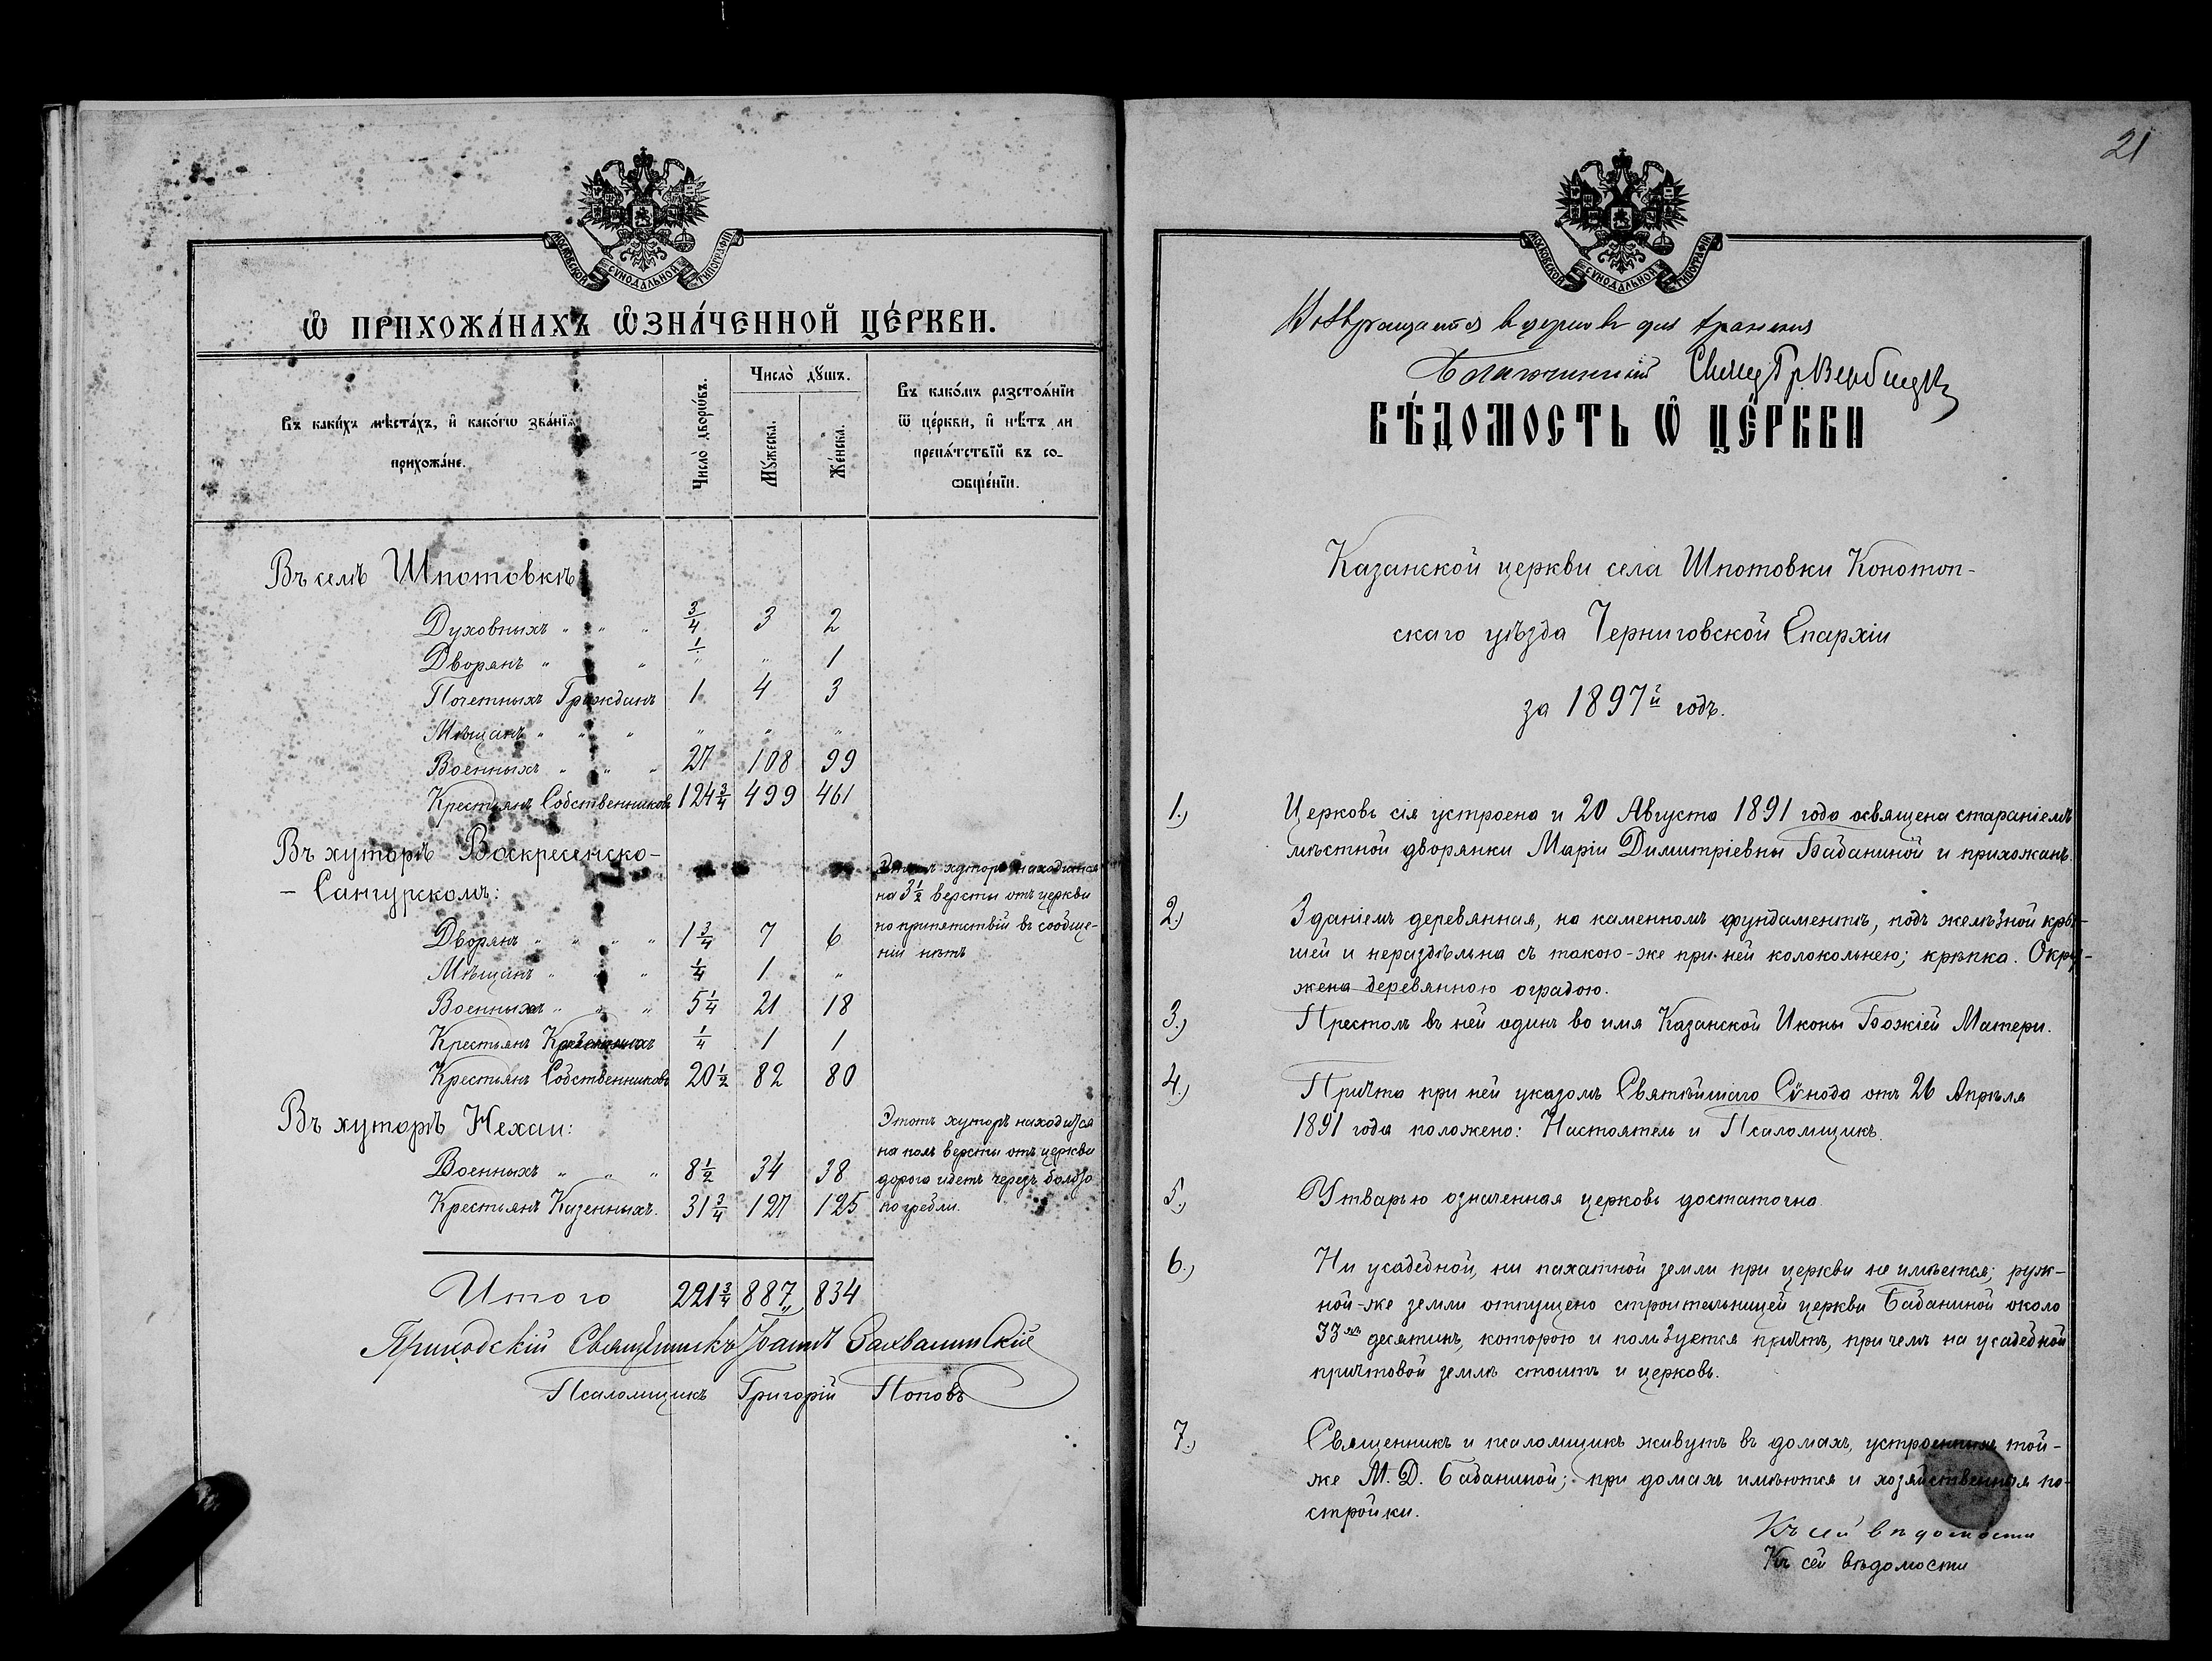 МОСКОВСКОЙ СУНОДАЛЬНОЙ ТИПОГРАФІИ
Ѡ ПРИХОЖА́НАХЪ ѠЗНА́ЧЕННОЙ ЦЕ́РКВИ.
Въ каки́хъ мѣста́хъ, и҆ како́гѡ зва́нїѧ
прихожа́не.
Число̀ дворѡ́въ.
Число̀ дꙋ́шъ.
Мꙋ́жеска.
Же́нска.
Въ како́мъ разстоѧ́нїи
ѿ це́ркви, и҆ нѣ́тъ ли
препѧ́тствїй въ со-
ѻбще́нїи.
Въ селѣ Шпотовкѣ
Духовныхъ " " " 3/4 3 2
Дворянъ " " 1/" " 1
Почетныхъ Гражданъ 1 4 3
Мѣщанъ " " " " " "
Военныхъ " " " 27 108 99
Крестьянъ Собственниковъ 124 3/4 499 461
Въ хуторѣ Воскресенско-
- Сангурскомъ:
Этотъ хуторъ находится
на 3 1/2 версты отъ церкви
но припятствій въ сообще-
ніи нѣтъ
Дворянъ " " " " 1 3/4 7 6
Мѣщанъ " " " 1/4 1 "
Военныхъ " " " 5 1/4 21 18
Крестьянъ 1/4 1 1
Крестьянъ Собственниковъ 20 1/2 82 80
Въ хуторѣ Нехаи:
Этотъ хуторъ находится
на полъ версты отъ церкви
дорога идетъ черезъ болото
по гребли.
Военныхъ " " " 8 1/2 34 38
Крестьянъ Казенныхъ. 31 3/4 127 125
Итого 221 3/4 887 834
Приходскій Священникъ Іоаннъ
Псаломщикъ Григорій Поповъ
21
МОСКОВСКОЙ СУНОДАЛЬНОЙ ТИПОГРАФІИ
Возвращается в церковь для хранения
Благочинный Священ Гр. Вербицкій
ВѢ́ДОМОСТЬ Ѡ ЦЕ́РКВИ
Казанской церкви села Шпотовки Конотоп-
скаго уѣзда Черниговской Епархіи
за 1897й годъ.
1.) Церковь сія устроена и 20 Августа 1891 года освящена стараніемъ
мѣстной дворянки Маріи Димитріевны Бабаниной и прихожанъ.
2.) Зданіемъ деревянная, на каменномъ фундаментѣ, подъ желѣзной кры-
шей и нераздѣльна съ такою-же при ней колокольнею; крѣпка. Окру-
жена деревянною оградою.
3.) Престолъ въ ней одинъ во имя Казанской Иконы Божіей Матери.
4.) Причта при ней указомъ Святѣйшаго Сѵнода отъ 26 Апрѣля
1891 года положено: Настоятель и Псаломщикъ.
5.) Утварью означенная церковь достаточна.
6.) Ни усадебной, ни пахатной земли при церкви не имѣется; руж-
ной-же земли отпущено строительницей церкви Бабаниной около
33хъ десятинъ, которою и пользуется причтъ, при чемъ на усадебной
причтовой землѣ стоитъ и церковь.
7.) Священникъ и псаломщикъ живутъ въ домахъ, устроенныхъ той-
же М. Д. Бабаниной; при домахъ имѣются и хозяйственныя по-
стройки.
Къ сей вѣдомости
Къ сей вѣдомости